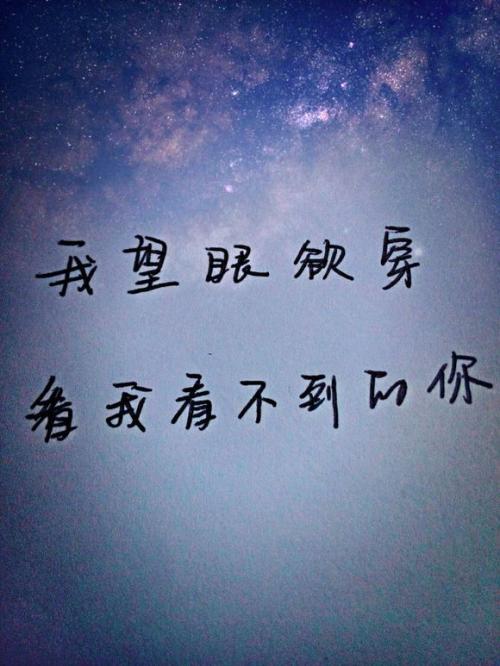 我望眼欲穿
看我看不到的你